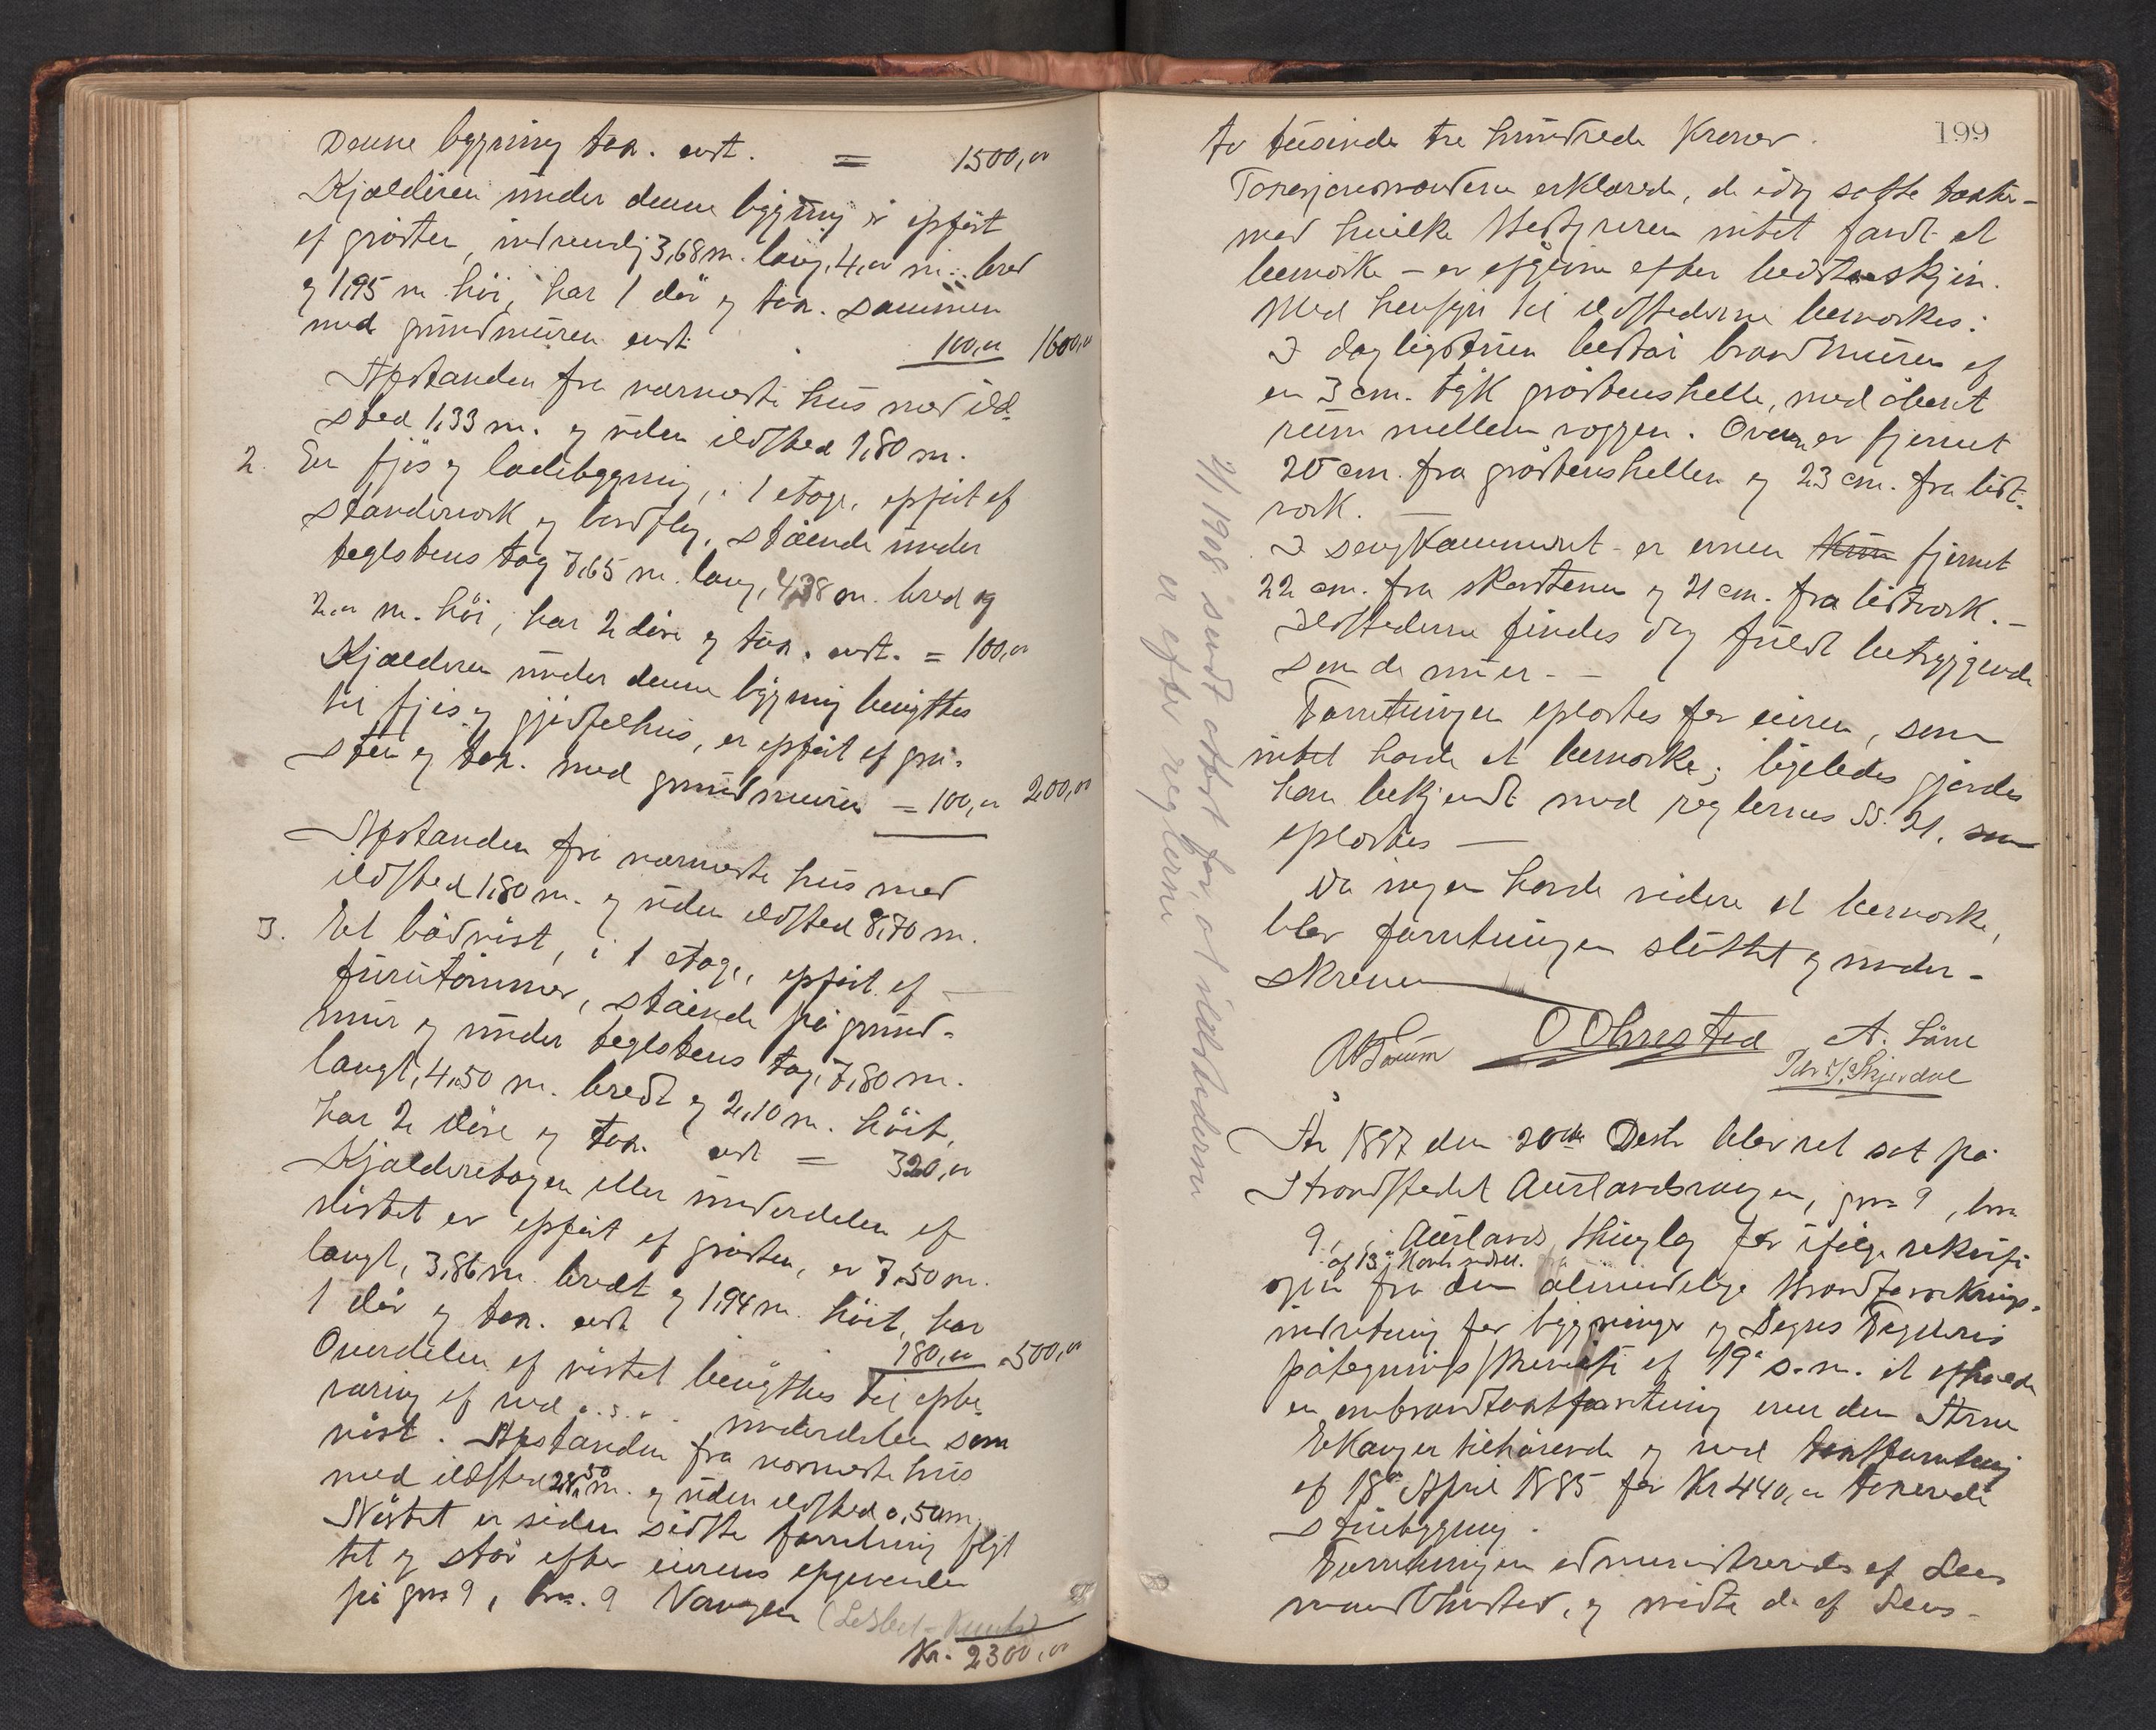 Denne bygning tax. verdt. = 1500,00
Kjælderen under denne bygning er opført
af gråsten, indvendig 3,68 m. lang, 4,00 m. bred
og 1,95 m høi, har 1 dør og tax. sammen
med grundmuren verdt 100,00 1600,00
Afstanden fra nærmeste hus med ild-
sted 1,33 m. og uden ildsted 1,80 m.
2. En fjøs og ladebygning, i 1 etage, opført af
standerverk og bordflag, stående under
teglstens tag 7,65 m. lang, 4,38 m. bred og
2,00 m. høi, har 2 døre og tax. verdt. = 100,00
Kjælderen under denne bygning benyttes
til fjøs og gjødselhus, er opført af grå-
sten og tax. med grundmuren = 100,00 200,00
Afstanden fra nærmeste hus med
ildsted 1,80 m. og uden ildsted 8,70 m.
3. Et bådnøst, i 1 etage, opført af
furutømmer, stående på grund-
mur og under teglstens tag, 7,80 m.
langt, 4,50 m. bredt og 2,10 m. høit,
har 2 døre og tax. verdt = 320,00
Kjælderetagen eller underdelen af
nøstet er opført af gråsten, er 7,50 m.
langt, 3,86 m. bredt og 1,94 m. høit, har
1 dør og tax. verdt 180,00 500,00
Overdelen af nøstet benyttes til opbe-
varing af ved o.s.v. underdelen som
nøst. Afstanden fra nærmeste hus
med ildsted 28,50 m. og uden ildsted 0,50 m.
Nøstet er siden sidste forretning flyt
tet og står efter eierens opgivende
på gno 9, bno. 9 Vangen
Kr. 2300,00
199
to tusinde tre hundrede Kroner.
Taxasjonsmændene erklærede, de idag satte taxter -
med hvilke Bestyreren intet fandt at
bemærke - er afgivne efter bedste skjøn.
Med hensyn til ildstederne bemærkes:
I dagligstuen består brandmuren af
en 3 cm. tyk gråstenshelle, med åbent
rum mellem væggen. Ovnen er fjernet
20 cm. fra gråstenshellen og 23 cm. fra list-
værk.
I sengkammeret er ovnen fjernet
22 cm. fra skorstenen og 21 cm. fra listværk. -
Ildstederne findes dog fuldt betryggende
som de nu er. -
Forretningen oplæstes for eieren, som
intet havde at bemærke; ligeledes gjordes
han bekjendt med reglernes §§. 21, som
oplæstes -
Da ingen havde videre at bemærke,
blev forretningen sluttet og under-
skreven
O Ohnsted A. Låne
År 1897 den 20de Decbr blev ret sat på
Strandstedet Aurlandsvangen, gno 9, bno
9, i Aurlands thinglag for ifølge rekvisi
af 13 Novbr sidstl.
sjon fra den almindelige Brandforsikrings-
indretning for bygninger og Sogns Fogderis
påtegningsskrivelse af 19 s.m. at afholde
en ombrandtaxtforretning over den Arne
Ekanger tilhørende og ved taxtforretning
af 18 April 1885 for Kr 440,00 taxerede
stuebygning.
Forretningen administreredes af Lens
mand Ohnsted, og mødte de af Lens-
1908 sendt attest for, at ildstederne
er efter reglerne